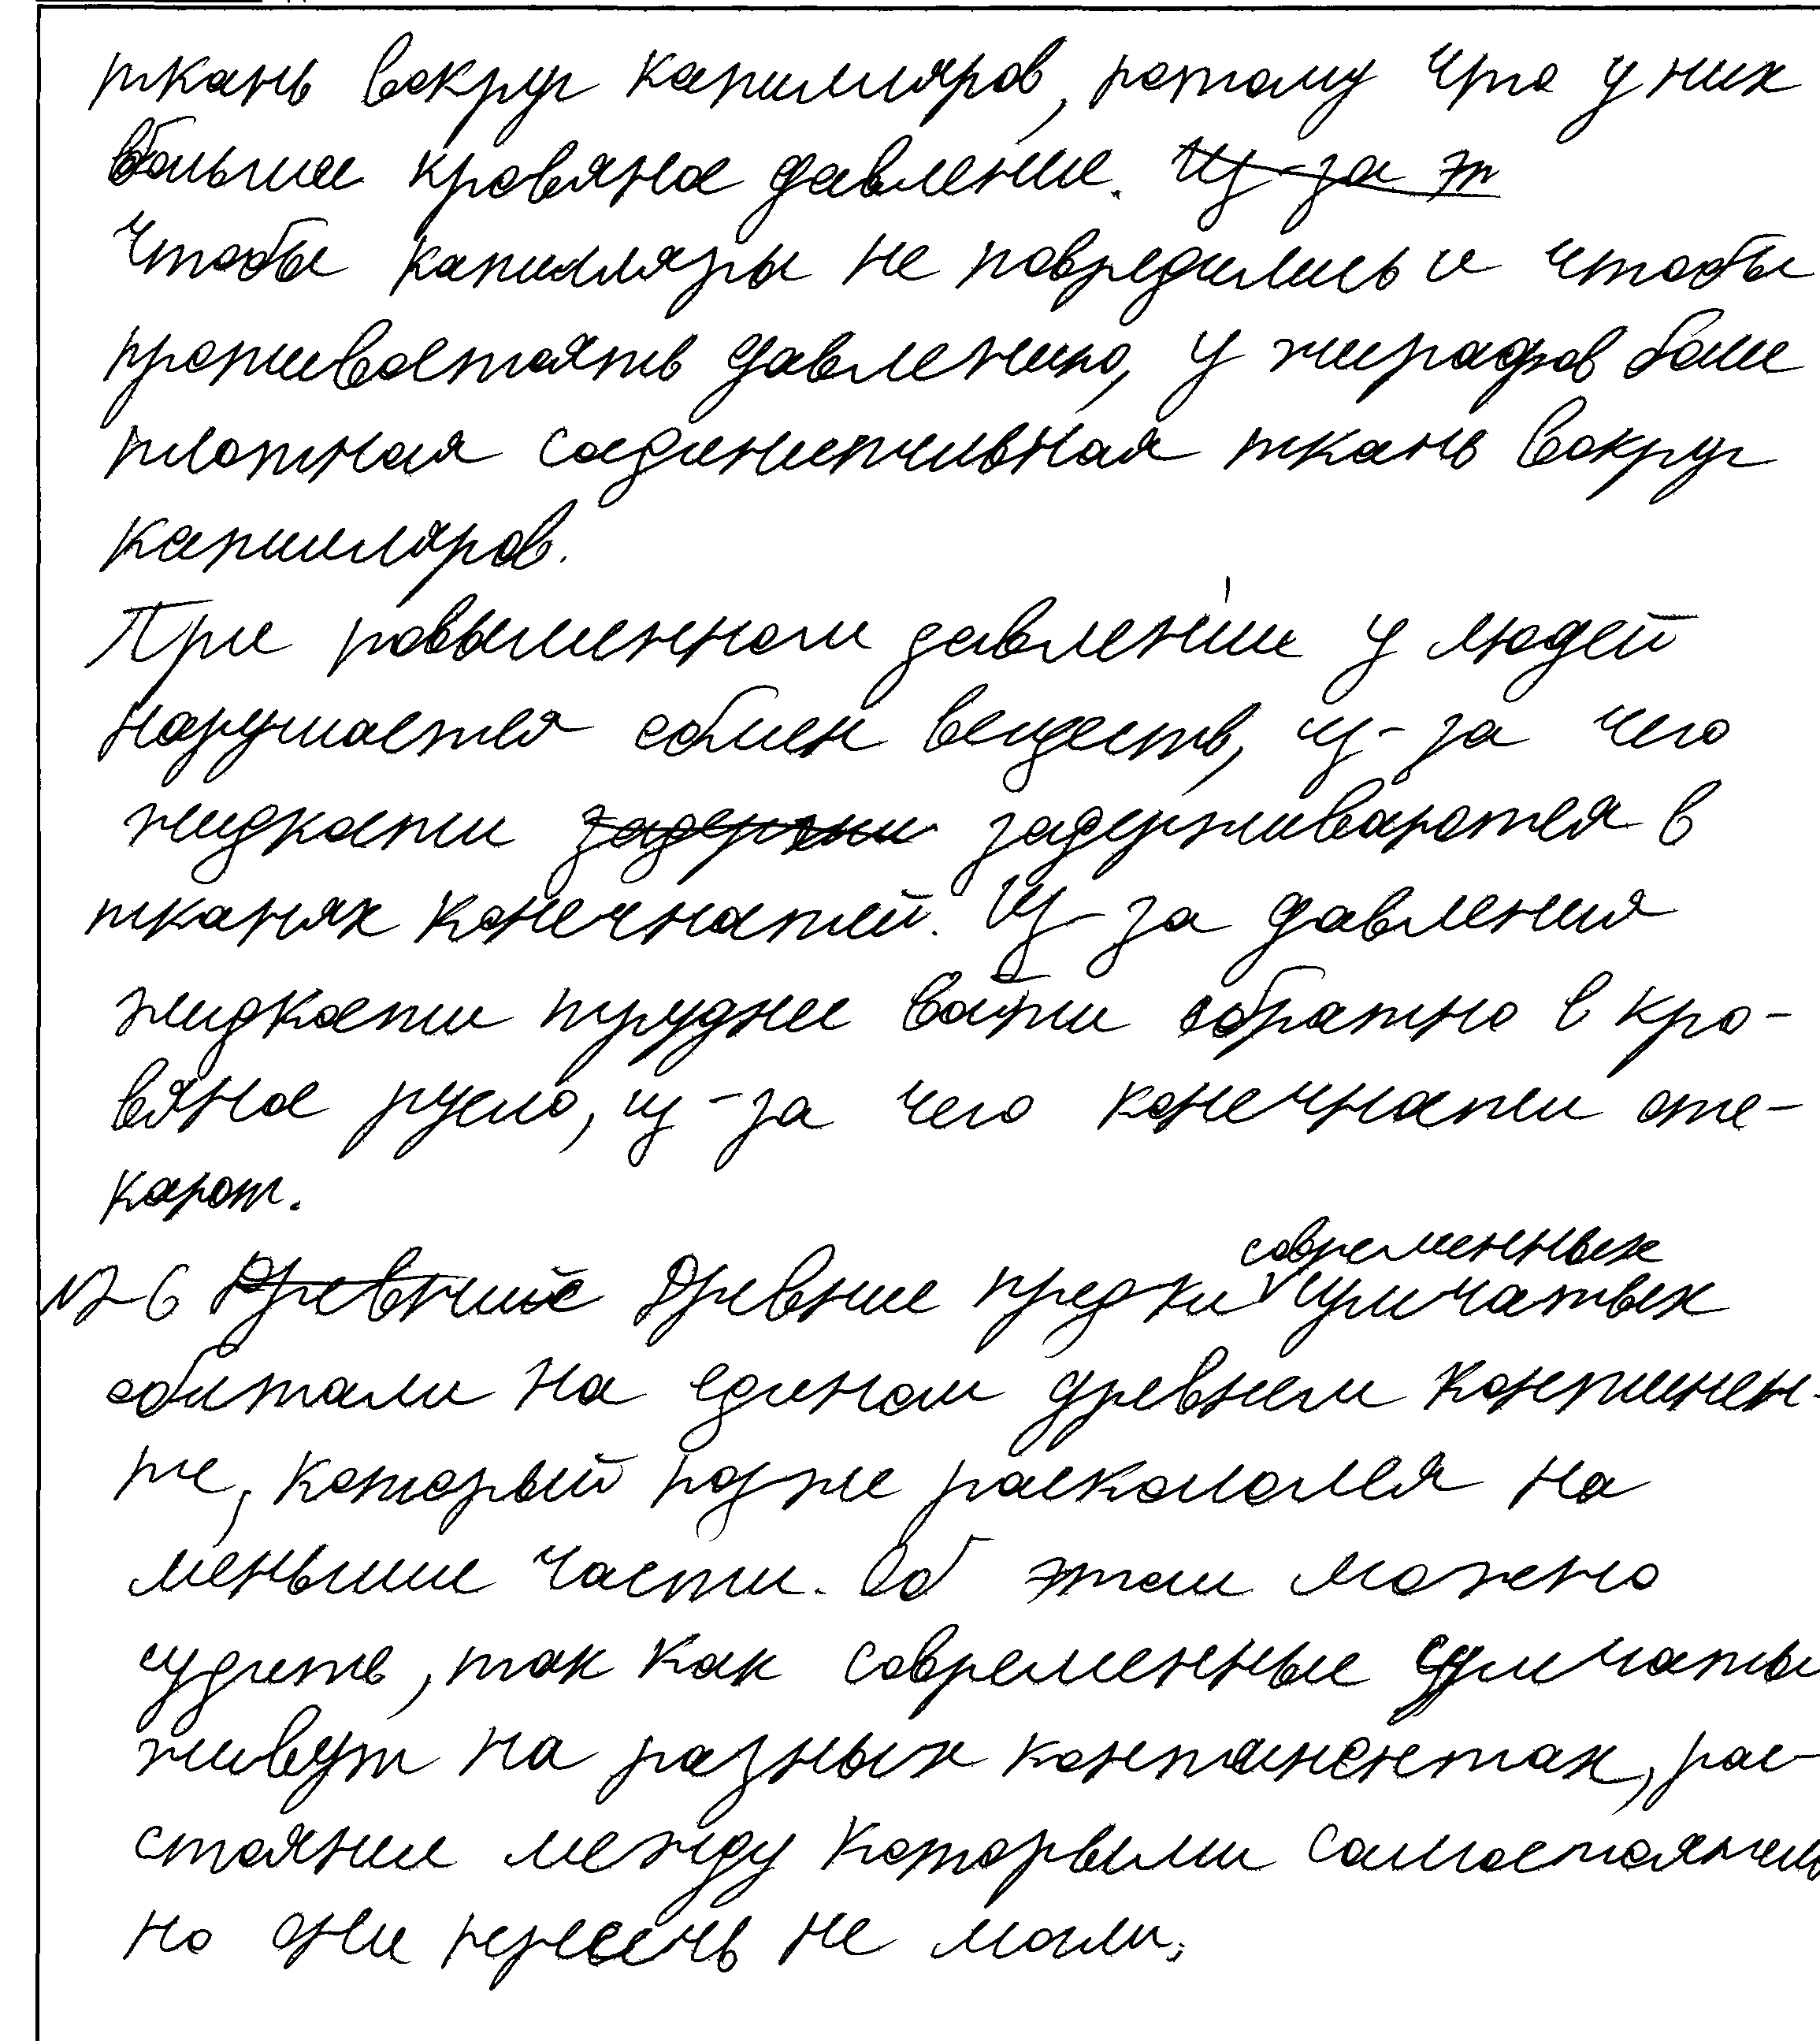 ткань вокруг капилляров, потому что у них
больше кровяное давление. Из-за эт
Чтобы капилляры не повредились и чтобы
противостоять давлению, у жирафов более
плотная соединительная ткань вокруг
капилляров.
При повышенном давлении у людей
нарушается обмен веществ, из-за чего
жидкости задержи задерживаются в
тканях конечностей. Из-за давления
жидкости труднее войти обратно в кро-
вяное русло, из-за чего конечности оте-
кают.
№6 Древние Древние предки современных сумчатых
обитали на едином древнем континен-
те, который позже раскололся на
меньшие части. Об этом можно
судить, так как современные сумчаты
живут на разных континентах, рас-
стояние между которыми самостоятель
но они пересечь не могли.